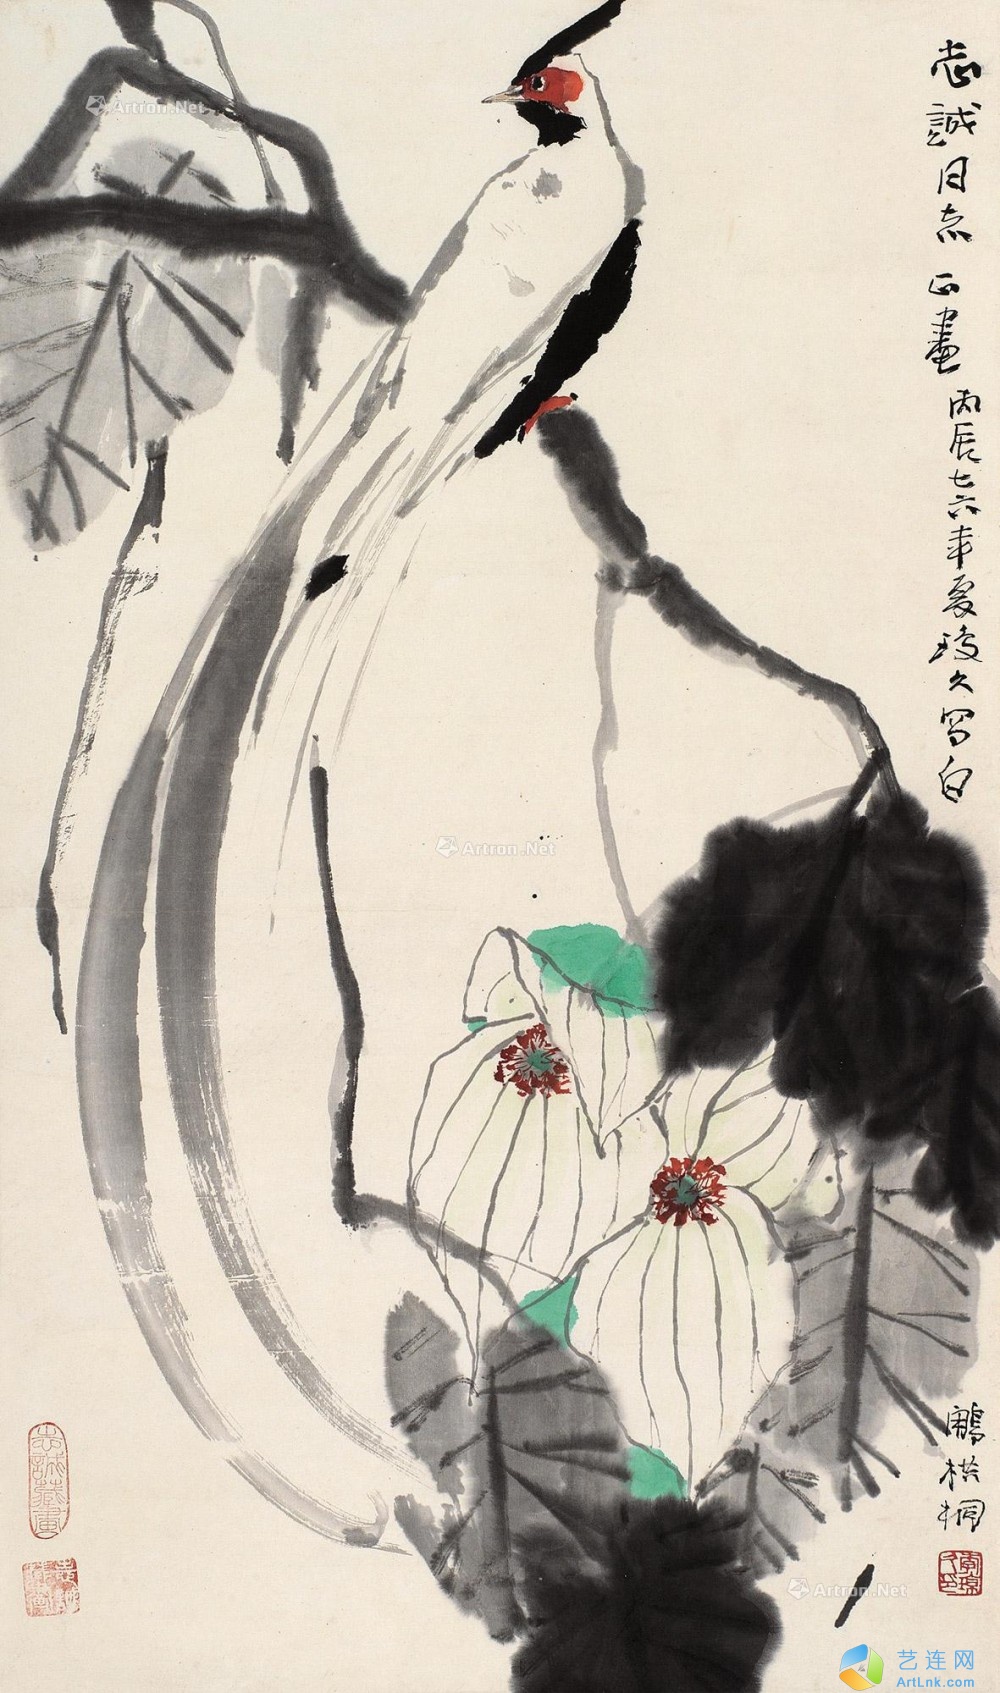 志誠同志正畫丙辰七六年夏琦久写白
鷴栱桐
志誠藏畫
Artron.Net
Artron.Net
Artron.Net
艺连网
ArtLnk.com